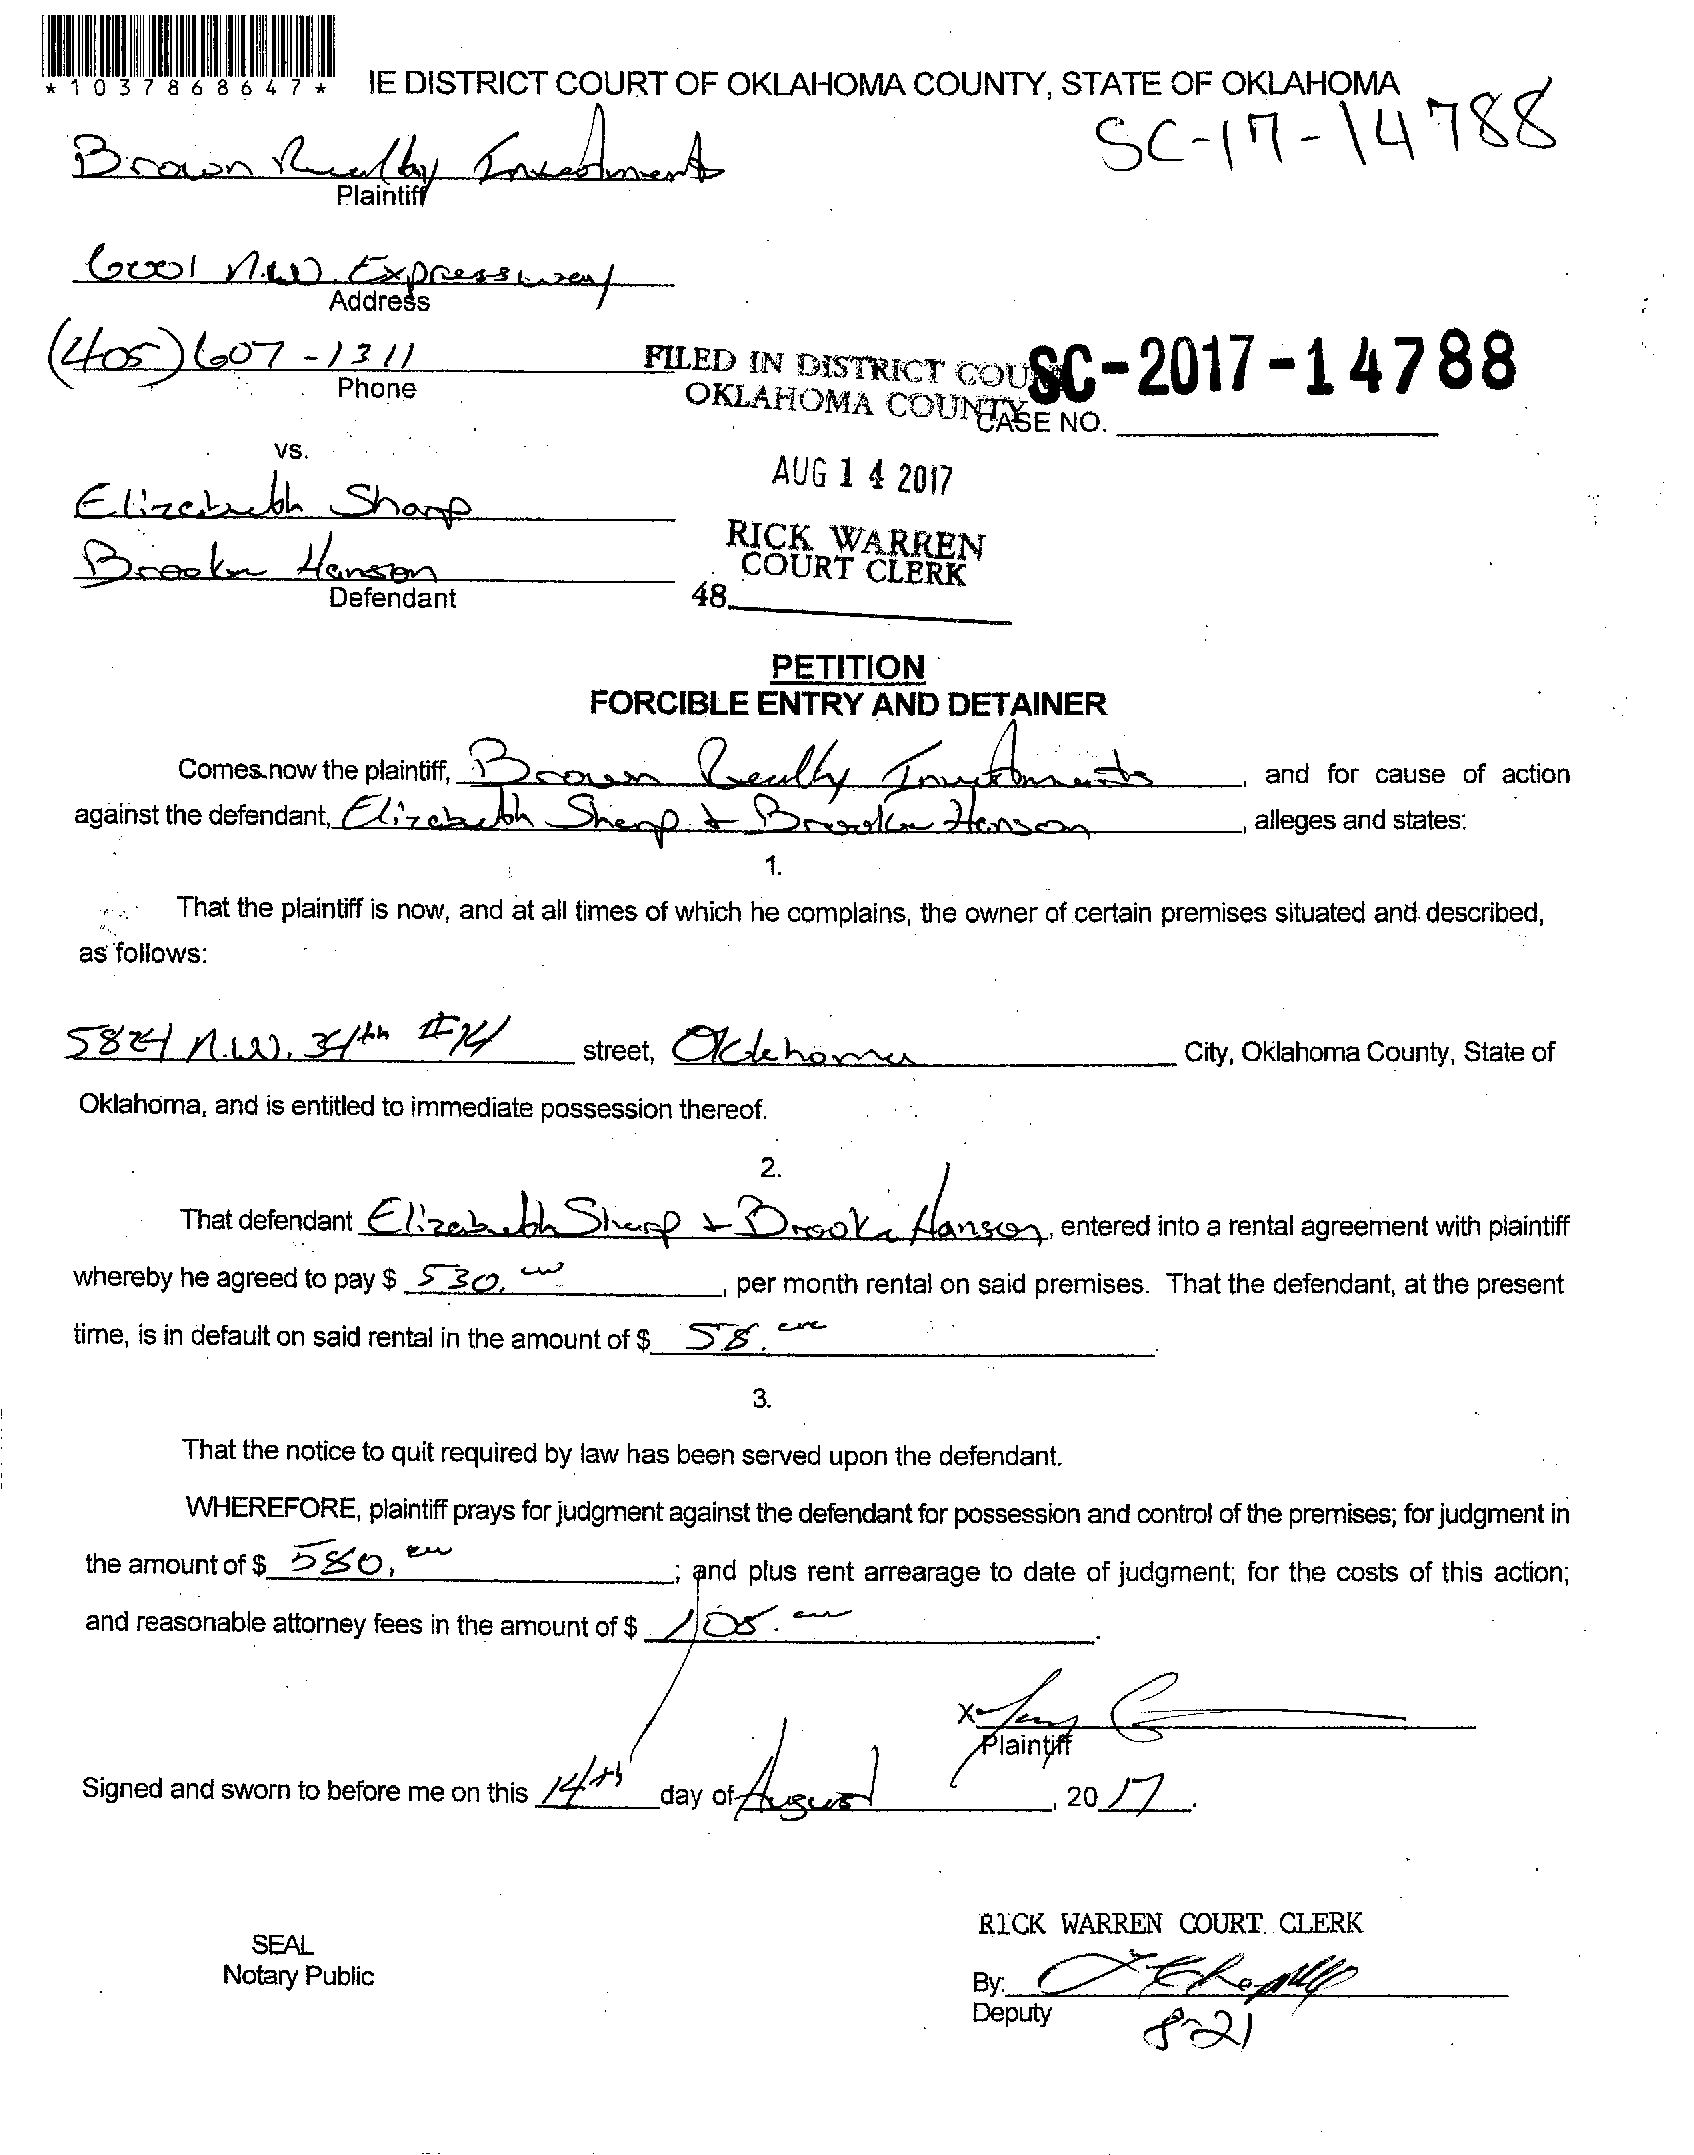 *1037868647*
IE DISTRICT COURT OF OKLAHOMA COUNTY, STATE OF OKLAHOMA
SC-17-14788
Brown Realty Investment
Plaintiff
6001 N.W. Expressway
Address
(405) 607-1311
Phone
FILED IN DISTRICT COU
SC-2017-14788
OKLAHOMA COUNTY
CASE NO.
vs.
AUG 14 2017
Elizabeth Sharp
RICK WARREN
COURT CLERK
Brooke Hanson
Defendant
48
PETITION
FORCIBLE ENTRY AND DETAINER
Comes now the plaintiff, Brown Realty Investments, and for cause of action
against the defendant, Elizabeth Sharp + Brooke Hanson, alleges and states:
1.
That the plaintiff is now, and at all times of which he complains, the owner of certain premises situated and described,
as follows:
5824 N.W. 34th #14 street, Oklahoma City, Oklahoma County, State of
Oklahoma, and is entitled to immediate possession thereof.
2.
That defendant Elizabeth Sharp + Brooke Hanson, entered into a rental agreement with plaintiff
whereby he agreed to pay $ 530., per month rental on said premises. That the defendant, at the present
time, is in default on said rental in the amount of $ 58.
3.
That the notice to quit required by law has been served upon the defendant.
WHEREFORE, plaintiff prays for judgment against the defendant for possession and control of the premises; for judgment in
the amount of $ 580. ; and plus rent arrearage to date of judgment; for the costs of this action;
and reasonable attorney fees in the amount of $ 105.
X
Plaintiff
Signed and sworn to before me on this 14th day of August, 2017.
RICK WARREN COURT CLERK
SEAL
Notary Public
By:
Deputy
8-21